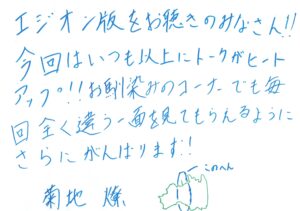 エジオン版をお聴きのみなさん!!
今回はいつも以上にトークがヒート
アップ!!お馴染みのコーナーでも毎
回全く違う一面を見てもらえるように
さらにがんばります!!
菊地 燎
このへん